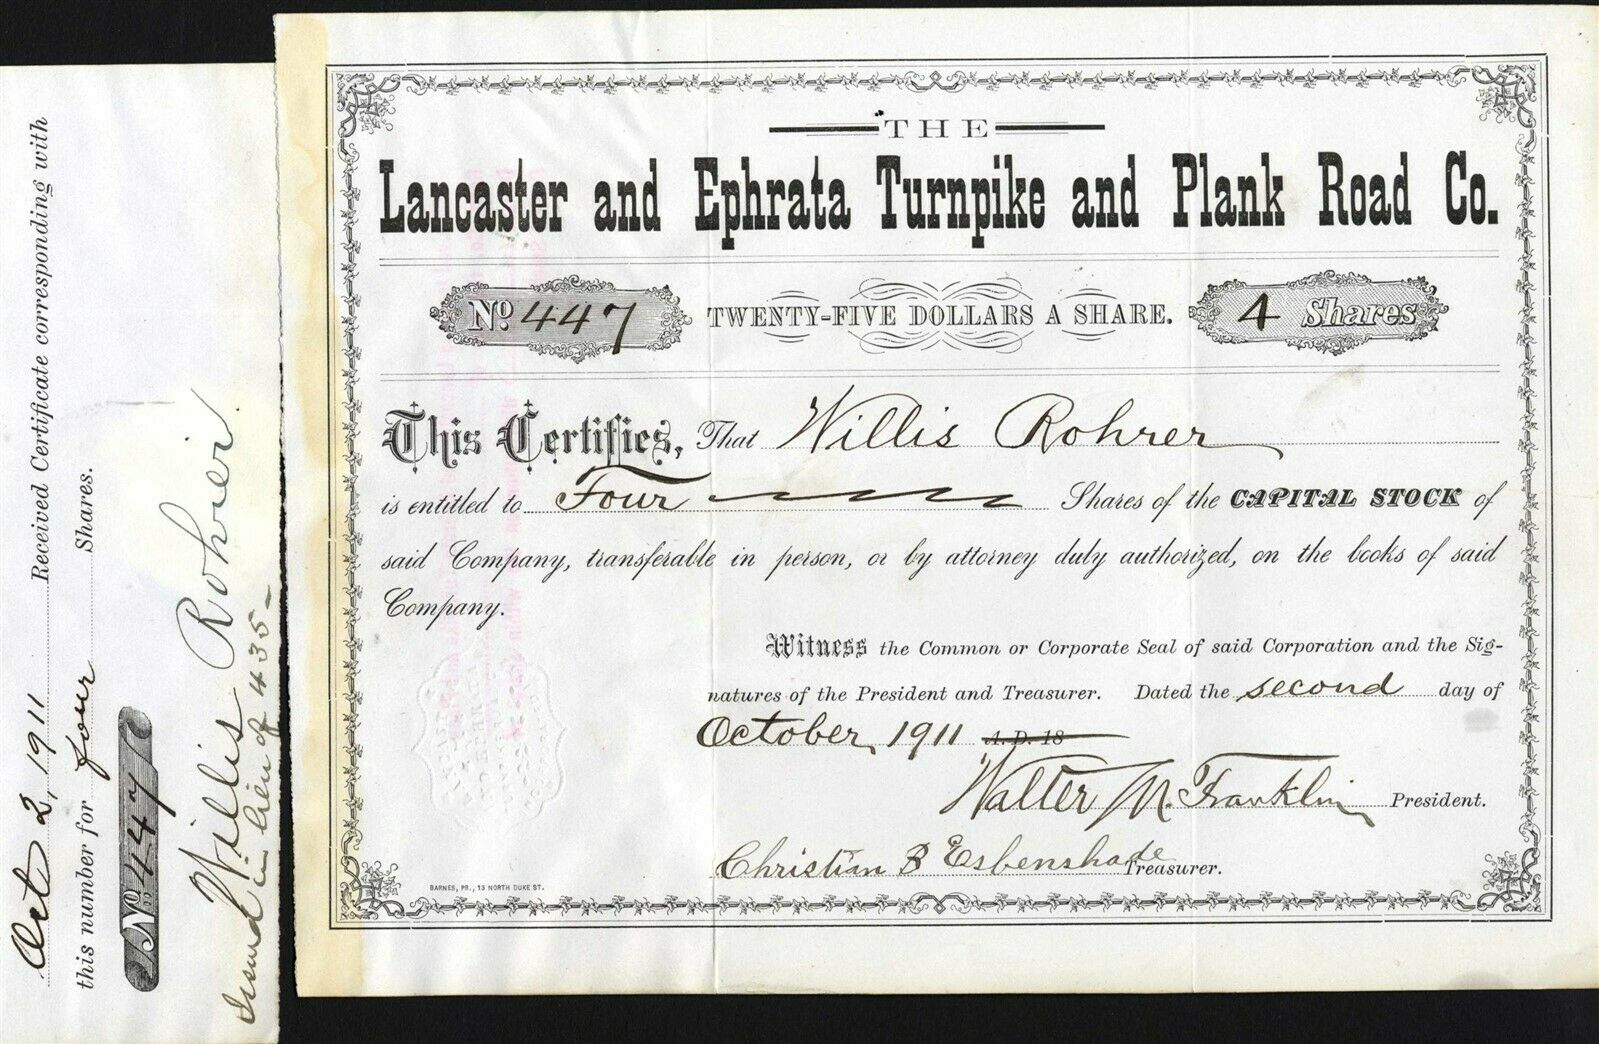 Oct 2, 1911 Received Certificate corresponding with
this number for four Shares.
No. 447
Willis Rohrer.
Issued in lieu of 435-
THE
Lancaster and Ephrata Turnpike and Plank Road Co.
No. 447 TWENTY-FIVE DOLLARS A SHARE. 4 Shares
This Certifies, That Willis Rohrer
is entitled to Four Shares of the CAPITAL STOCK of
said Company, transferable in person, or by attorney duly authorized, on the books of said
Company.
Witness the Common or Corporate Seal of said Corporation and the Sig-
natures of the President and Treasurer. Dated the second day of
October, 1911 A. D. 18
Walter M. Franklin President.
Christian B Esbenshade Treasurer.
BARNES, PR., 13 NORTH DUKE ST.